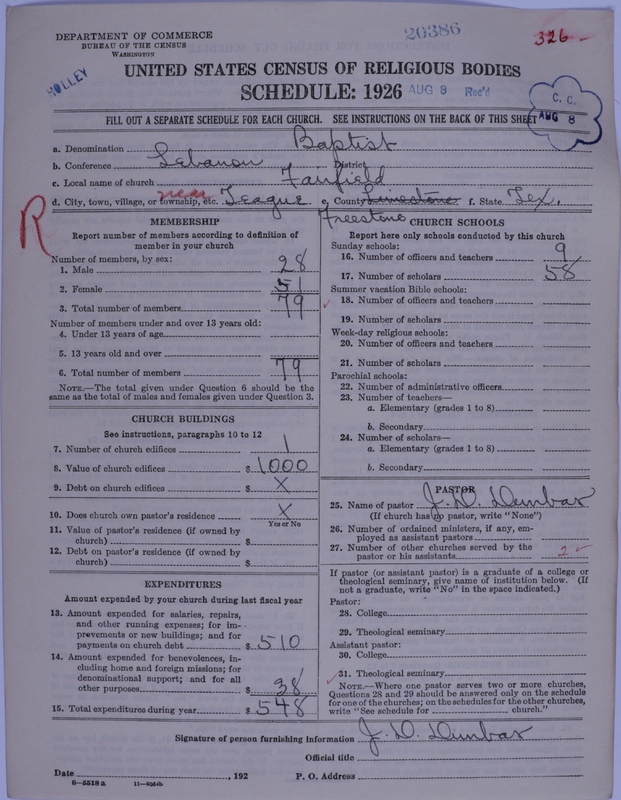 DEPARTMENT OF COMMERCE
BUREAU OF THE CENSUS
WASHINGTON
20386
326
HOLLEY
UNITED STATES CENSUS OF RELIGIOUS BODIES
SCHEDULE: 1926 AUG 8 Rec'd
C. C.
AUG 8
FILL OUT A SEPARATE SCHEDULE FOR EACH CHURCH. SEE INSTRUCTIONS ON THE BACK OF THIS SHEET
a. Denomination Baptist
b. Conference Lebanon District
c. Local name of church Fairfield
d. City, town, village, or township, etc. near Teague e. County Limestone f. State Tex.
Freestone
R
MEMBERSHIP
Report number of members according to definition of
member in your church
Number of members, by sex:
1. Male 28
2. Female 51
3. Total number of members 79
Number of members under and over 13 years old:
4. Under 13 years of age
5. 13 years old and over
6. Total number of members 79
NOTE.—The total given under Question 6 should be the
same as the total of males and females given under Question 3.
CHURCH BUILDINGS
See instructions, paragraphs 10 to 12
7. Number of church edifices 1
8. Value of church edifices $ 1000
9. Debt on church edifices $ X
10. Does church own pastor's residence X
Yes or No
11. Value of pastor's residence (if owned by
church) $
12. Debt on pastor's residence (if owned by
church) $
EXPENDITURES
Amount expended by your church during last fiscal year
13. Amount expended for salaries, repairs,
and other running expenses; for im-
provements or new buildings; and for
payments on church debt $ 510
14. Amount expended for benevolences, in-
cluding home and foreign missions; for
denominational support; and for all
other purposes $ 38
15. Total expenditures during year $ 548
CHURCH SCHOOLS
Report here only schools conducted by this church
Sunday schools:
16. Number of officers and teachers 9
17. Number of scholars 58
Summer vacation Bible schools:
18. Number of officers and teachers
19. Number of scholars
Week-day religious schools:
20. Number of officers and teachers
21. Number of scholars
Parochial schools:
22. Number of administrative officers
23. Number of teachers—
a. Elementary (grades 1 to 8)
b. Secondary
24. Number of scholars—
a. Elementary (grades 1 to 8)
b. Secondary
PASTOR
25. Name of pastor J. D. Dunbar
(If church has no pastor, write "None")
26. Number of ordained ministers, if any, em-
ployed as assistant pastors
27. Number of other churches served by the
pastor or his assistants 2
If pastor (or assistant pastor) is a graduate of a college or
theological seminary, give name of institution below. (If
not a graduate, write "No" in the space indicated.)
Pastor:
28. College
29. Theological seminary
Assistant pastor:
30. College
31. Theological seminary
NOTE.—Where one pastor serves two or more churches,
Questions 28 and 29 should be answered only on the schedule
for one of the churches; on the schedules for the other churches,
write "See schedule for church."
Signature of person furnishing information J. D. Dunbar
Official title
Date , 192 P. O. Address
6—5518 a 11—9064b